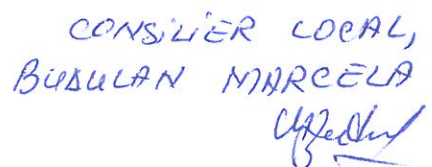 CONSILIER LOCAL,
BUDULAN MARCELA